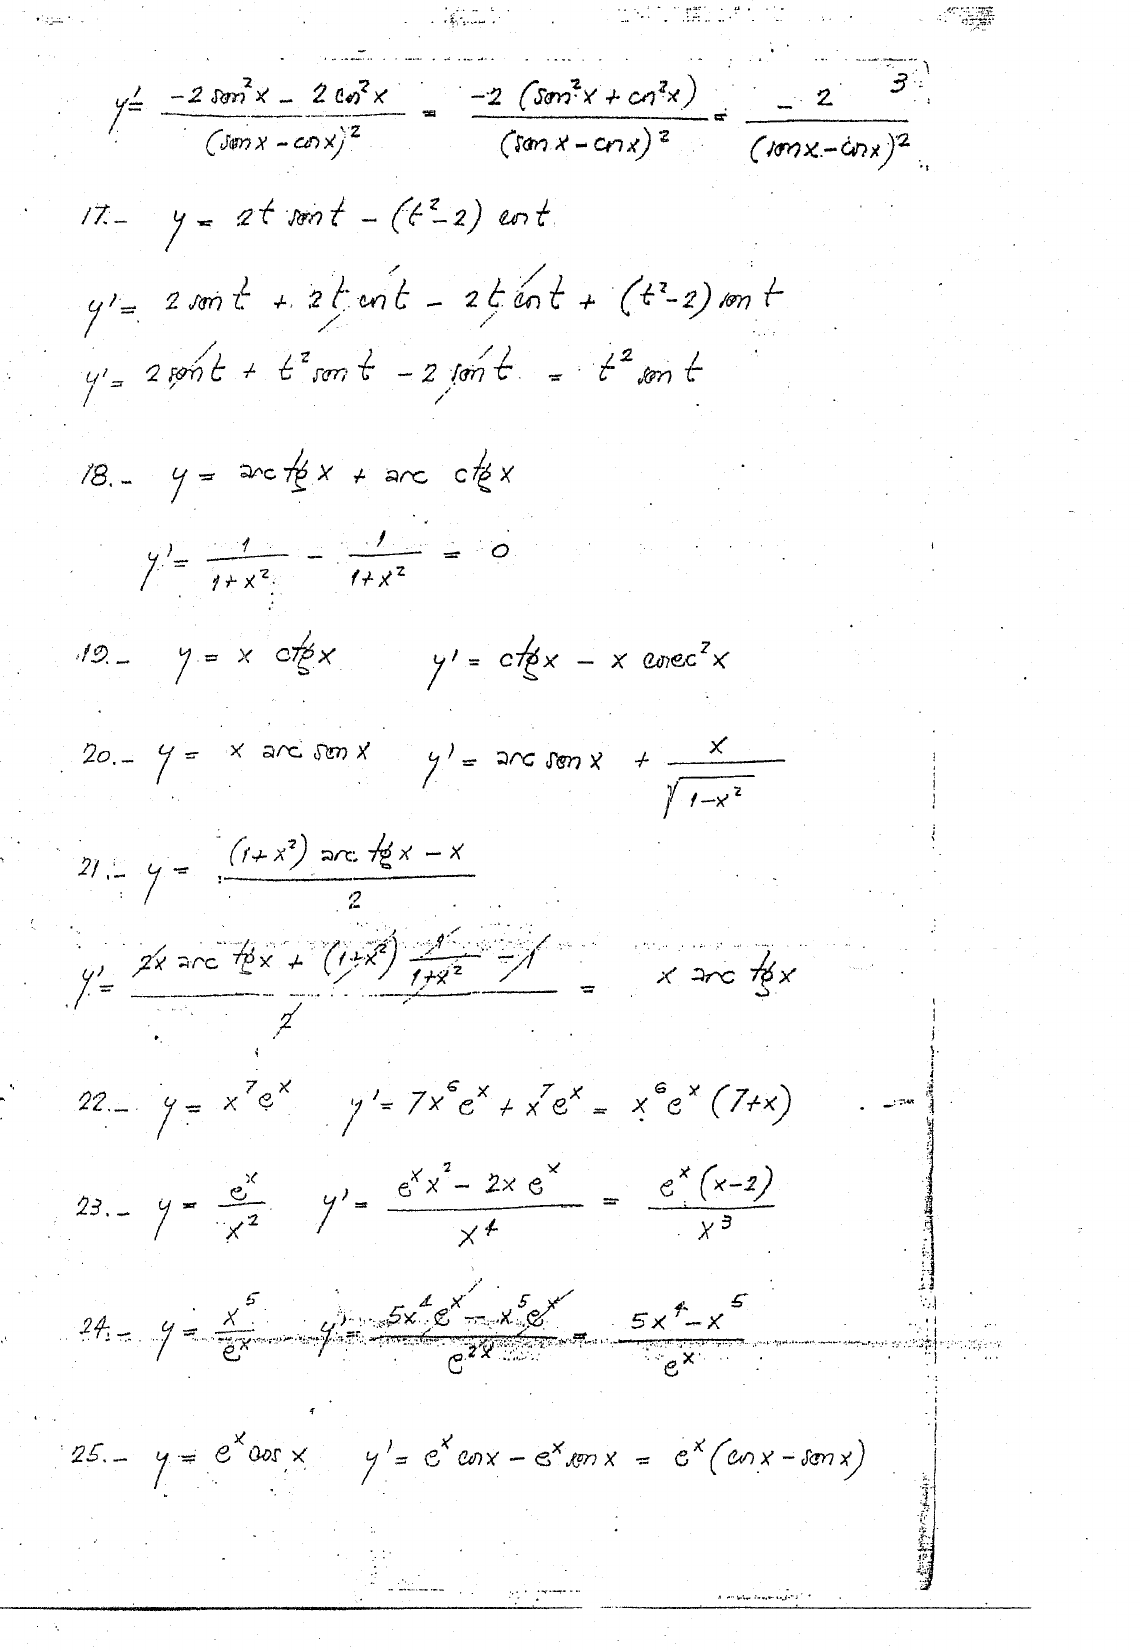 3
y' = (-2 sen²x - 2 cos²x)/(sen x - cos x)² = -2 (sen²x + cos²x)/(sen x - cos x)² = - 2/(sen x - cos x)²
17.- y = 2t sen t - (t²-2) cos t
y' = 2 sen t + 2t cos t - 2t cos t + (t²-2) sen t
y' = 2 sen t + t² sen t - 2 sen t = t² sen t
18.- y = arc tg x + arc ctg x
y' = 1/(1+x²) - 1/(1+x²) = 0
19.- y = x ctg x y' = ctg x - x cosec²x
20.- y = x arc sen x y' = arc sen x + x/√(1-x²)
21.- y = ((1+x²) arc tg x - x)/2
y' = (2x arc tg x + (1+x²) 1/(1+x²) - 1)/2 = x arc tg x
22.- y = x⁷eˣ y' = 7x⁶eˣ + x⁷eˣ = x⁶eˣ (7+x)
23.- y = eˣ/x² y' = (eˣx² - 2x eˣ)/x⁴ = eˣ(x-2)/x³
24.- y = x⁵/eˣ y' = (5x⁴eˣ - x⁵eˣ)/e²ˣ = (5x⁴-x⁵)/eˣ
25.- y = eˣ cos x y' = eˣ cos x - eˣ sen x = eˣ (cos x - sen x)